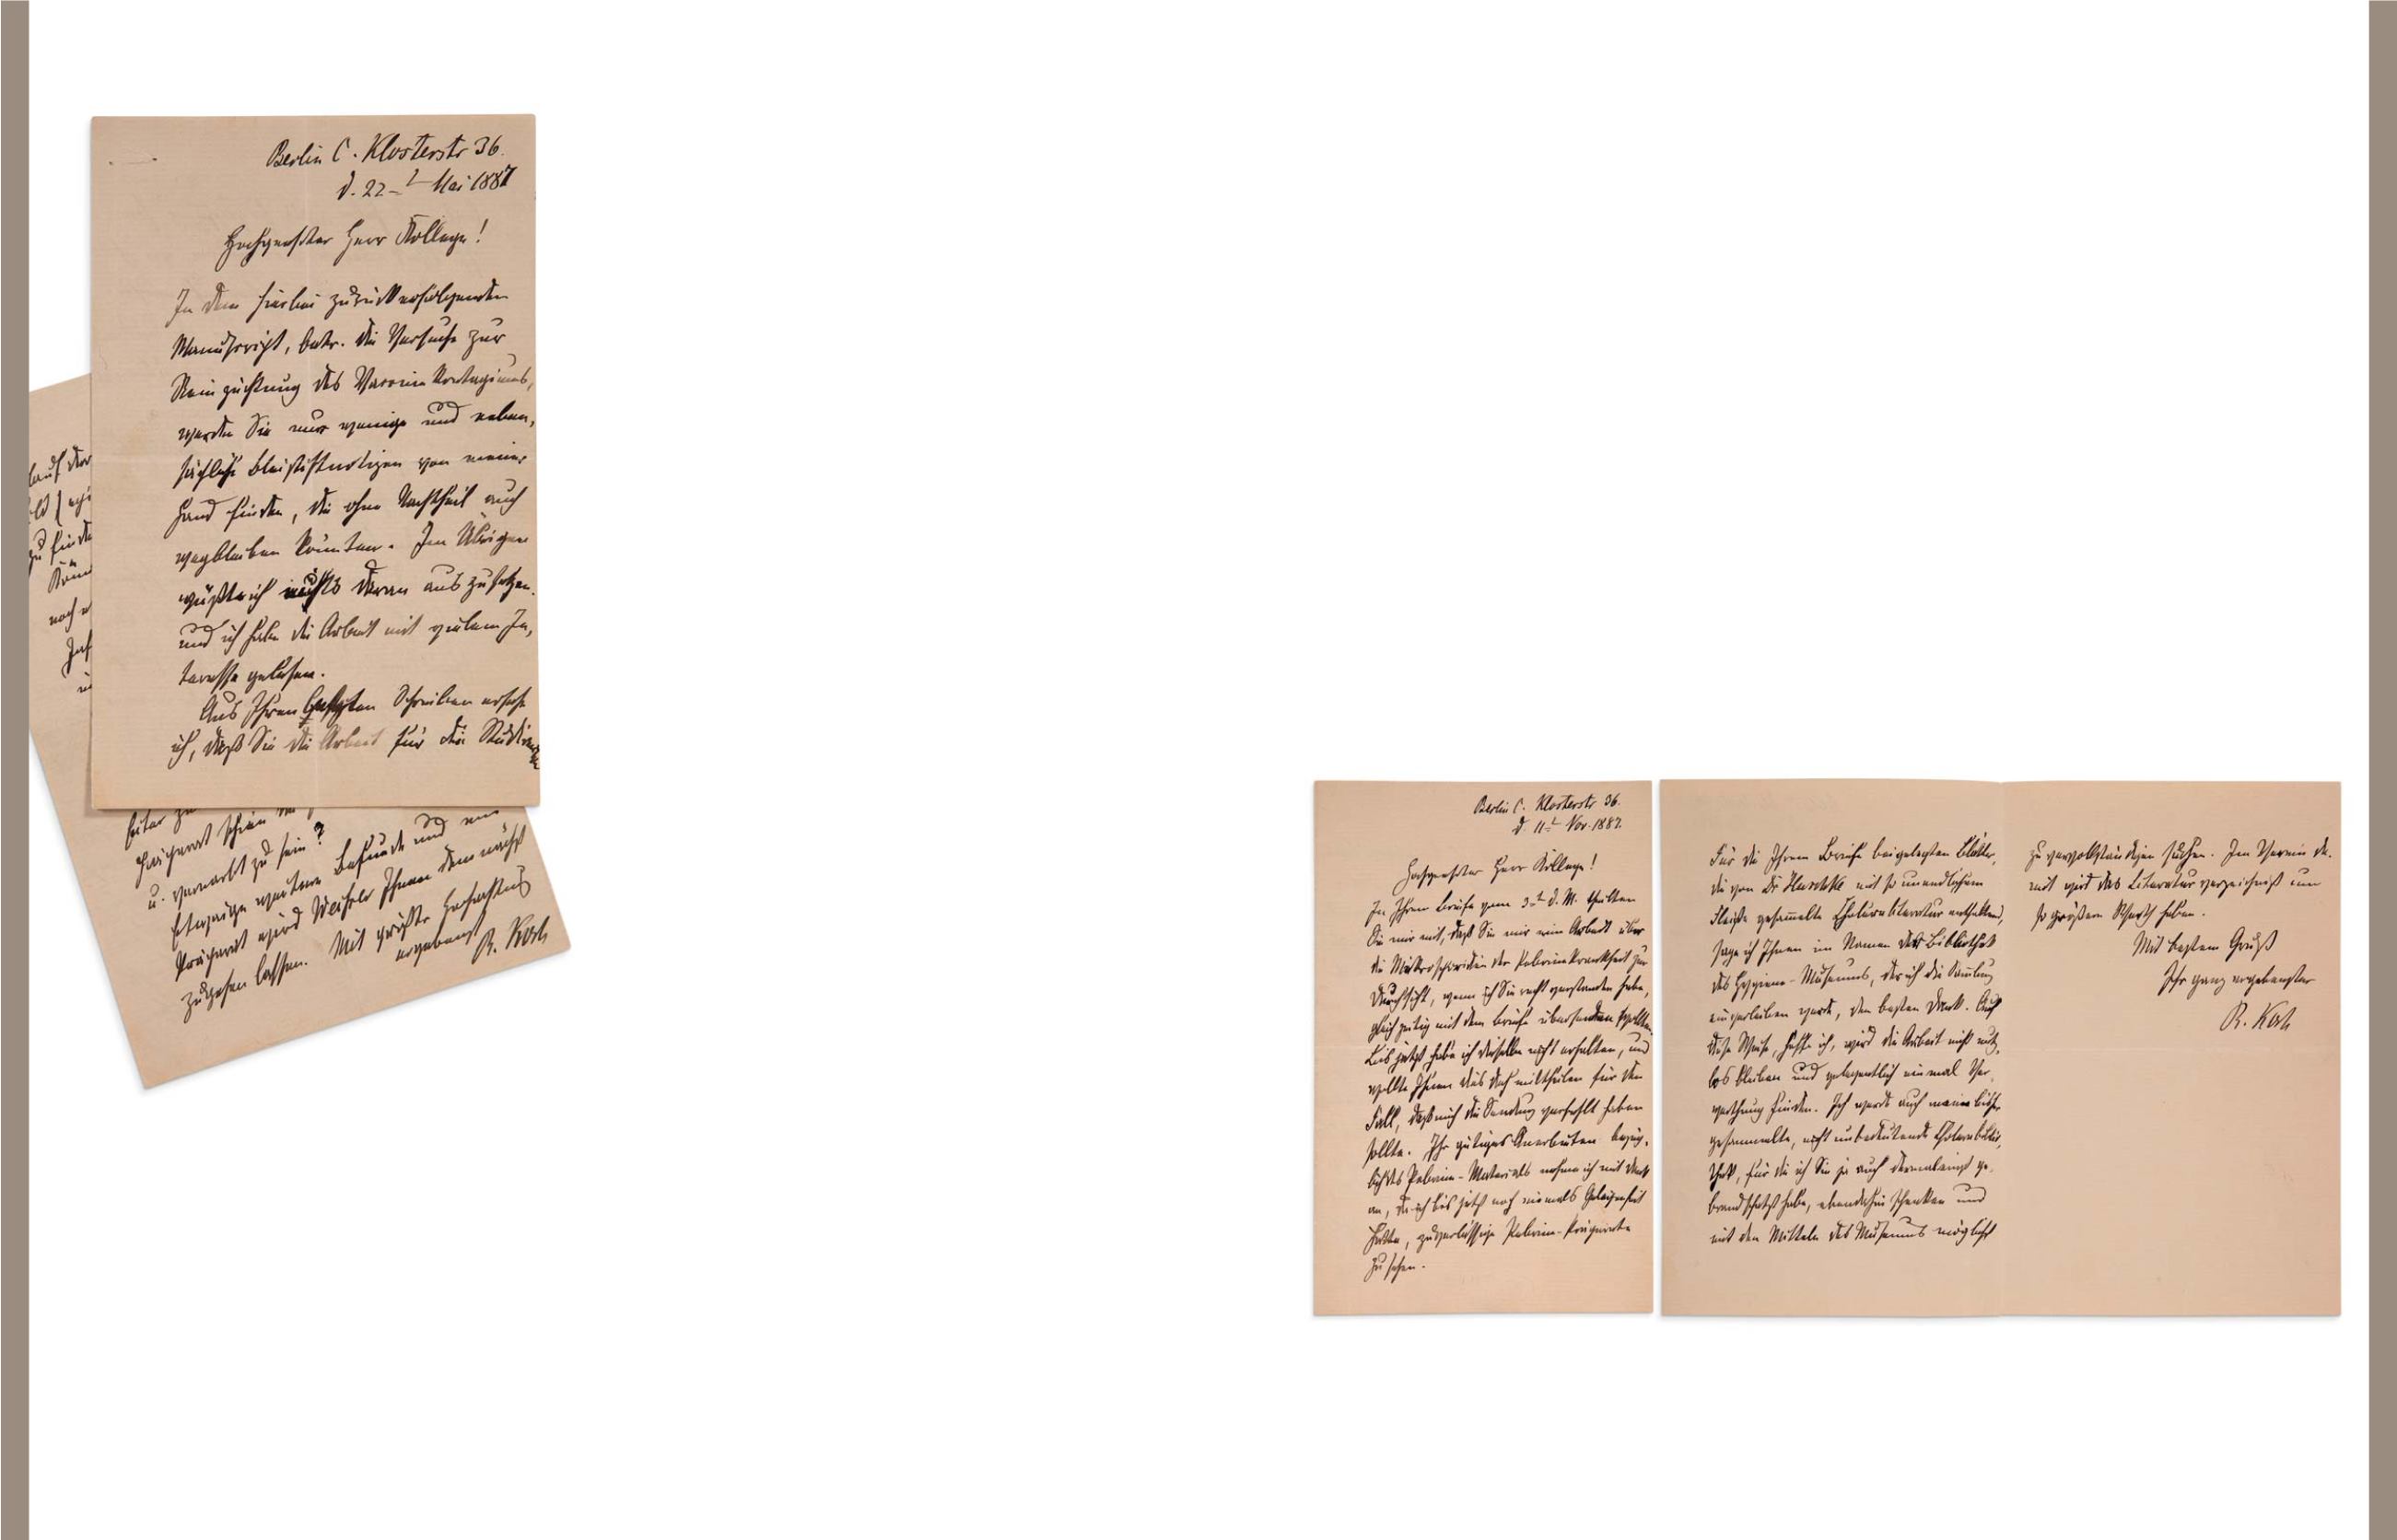 Berlin C. Klosterstr 36.
d. 22t Mai 1887
Hochgeehrter Herr Kollege!
In dem hierbei zurückerfolgenden
Manuscript, betr. die Versuche zur
Reinzüchtung des Vaccine Kontagiums,
werden Sie nur wenige und neben,
sächliche Bleistiftnotizen von meiner
Hand finden, die ohne Nachtheil auch
wegbleiben könnten. Im Übrigen
wüßte ich nichts daran auszusetzen.
und ich habe die Arbeit mit vielem In,
teresse gelesen.
Aus Ihrem geehrten Schreiben ersehe
ich, daß Sie die Arbeit für die
zu finde
noch
Präparat schien
u. vererbt zu sein?
Etwaige weitere Befunde und ein
Präparat wird Weisser Ihnen demnächst
zugehen lassen. Mit größter Hochachtung
ergebenst
R. Koch
Berlin C. Klosterstr 36.
d. 11t Nov. 1887.
Hochgeehrter Herr Kollege!
In Ihrem Briefe vom 3t d. M. theilten
Sie mir mit, daß Sie mir eine Arbeit über
die Mikrosporidien der Pebrinekrankheit zur
Durchsicht, wenn ich Sie recht verstanden habe,
gleichzeitig mit dem Briefe übersenden wollten.
Bis jetzt habe ich dieselbe nicht erhalten, und
wollte Ihnen dies doch mittheilen für den
Fall, daß mich die Sendung verfehlt haben
sollte. Ihr gütiges Anerbieten bezüg,
lich des Pebrine-Materials nehme ich mit Dank
an, da ich bis jetzt noch niemals Gelegenheit
hatte, zuverlässige Pebrine-Präparate
zu sehen.
Für die Ihrem Briefe beigelegten Blätter,
die von Dr Huschke mit so unendlichem
Fleiße gesammelte Choleraliteratur enthaltend,
sage ich Ihnen im Namen der Bibliothek
des Hygiene-Museums, der ich die Samlung
einverleiben werde, den besten Dank. Auf
diese Weise, hoffe ich, wird die Arbeit nicht nutz,
los bleiben und gelegentlich einmal Ver,
werthung finden. Ich werde auch meine bisher
gesammelte, nicht unbedeutende Cholerabiblio,
thek, für die ich Sie ja auch dermaleinst ge,
brandschatzt habe, ebendahin schenken und
mit den Mitteln des Museums möglichst
zu vervollständigen suchen. Im Verein da,
mit wird das Literaturverzeichniß um
so größeren Werth haben.
Mit bestem Gruß
Ihr ganz ergebenster
R. Koch